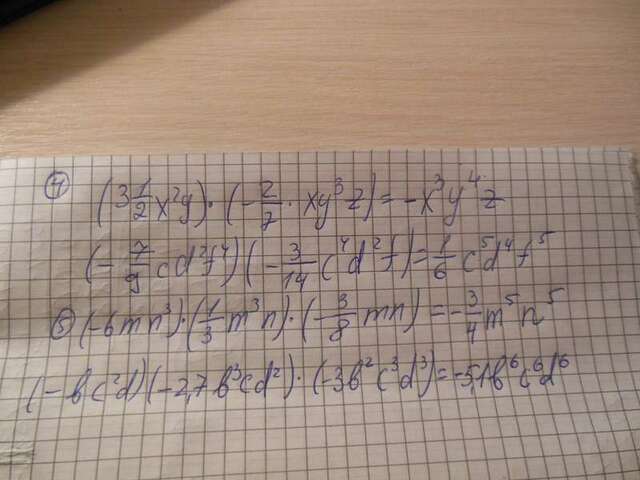 ④ (3 1/2 x²y)·(-2/7 · xy³z) = -x³y⁴z
(-7/9 cd²f⁴)(-3/14 c⁴d²f) = 1/6 c⁵d⁴f⁵
⑤ (-6mn³)·(1/3 m³n)·(-3/8 mn) = -3/4 m⁵n⁵
(-bc²d)(-2,7b³cd²)·(-3b²c³d³) = -5,1b⁶c⁶d⁶